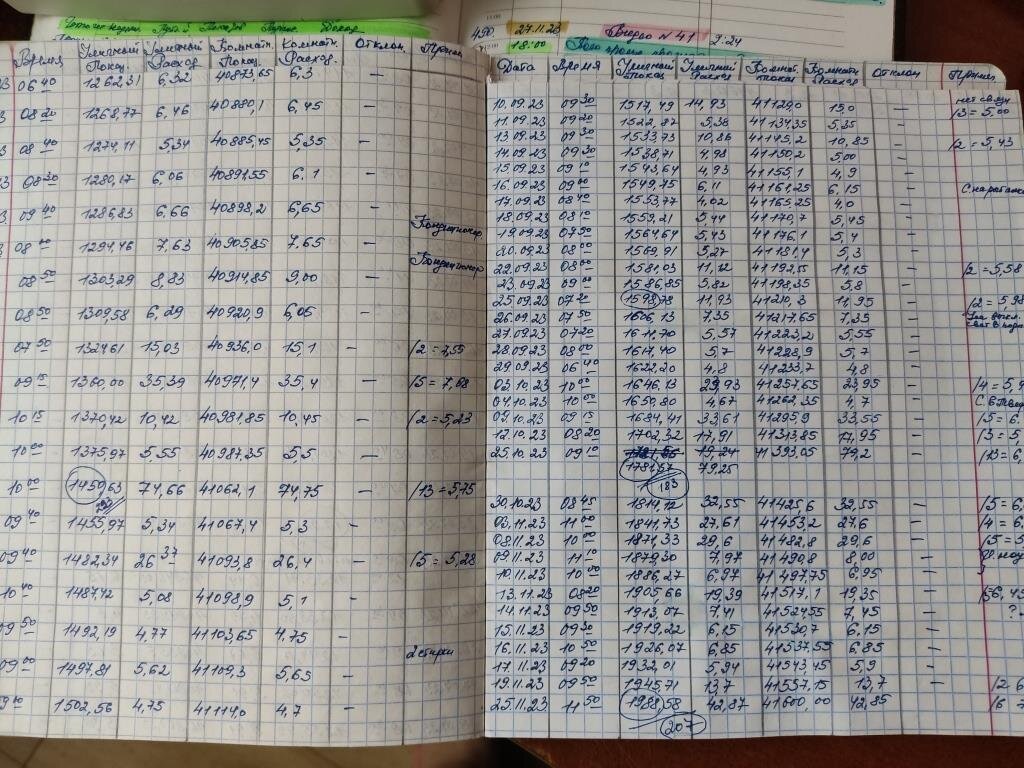 490. 27.11.23
18:00
Ведро N 41
9:24
Время Уличный Показ. Уличный Расход Комнатн. Показ. Комнатн. Расход Отклон.
06 40 1262,31 6,32 40873,65 6,3 —
08 20 1268,77 6,46 40880,1 6,45 —
08 40 1274,11 5,34 40885,45 5,35 —
08 30 1280,17 6,06 40891,55 6,1 —
09 40 1286,83 6,66 40898,2 6,65 —
Кондиционер.
08 00 1294,46 7,63 40905,85 7,65 —
Кондиционер
08 50 1303,29 8,83 40914,85 9,00 —
08 50 1309,58 6,29 40920,9 6,05 —
07 50 1324,61 15,03 40936,0 15,1 — /2=7,55
09 15 1360,00 35,39 40971,4 35,4 — /5=7,08
10 15 1370,42 10,42 40981,85 10,45 — /2=5,23
10 00 1375,97 5,55 40987,35 5,5 —
10 00 1450,63 74,66 41062,1 74,75 — /13=5,75
09 40 1455,97 5,34 41067,4 5,3 —
09 40 1482,34 26 37 41093,8 26,4 — /5=5,28
10 40 1487,42 5,08 41098,9 5,1 —
09 50 1492,19 4,77 41103,65 4,75 —
2 стирки
09 00 1497,81 5,62 41109,3 5,65 —
1502,56 4,75 41114,0 4,7 —
Дата Время Уличный показ Уличный Расход Комнат. показ Комнатн Расход Отклон
10.09.23 09 30 1517,49 14,93 41129,0 15,0 — /3=5,00
11.09.23 09 20 1522,87 5,38 41134,35 5,35 —
13.09.23 09 30 1533,73 10,86 41145,2 10,85 — /2=5,43
14.09.23 09 30 1538,71 4,98 41150,2 5,00 —
15.09.23 09 10 1543,64 4,93 41155,1 4,9 —
16.09.23 09 00 1549,75 6,11 41161,25 6,15 —
17.09.23 08 40 1553,77 4,02 41165,25 4,0 —
18.09.23 08 10 1559,21 5,44 41170,7 5,45 —
19.09.23 07 50 1564,64 5,43 41176,1 5,4 —
20.09.23 08 00 1569,91 5,27 41181,4 5,3 —
22.09.23 08 00 1581,03 11,12 41192,5 11,15 — /2=5,58
23.09.23 09 00 1586,85 5,82 41198,35 5,8 —
25.09.23 07 20 1598,78 11,93 41210,3 11,95 — /2=5,98
26.09.23 07 50 1606,13 7,35 41217,65 7,35 —
27.09.23 07 20 1611,70 5,57 41223,2 5,55 —
28.09.23 08 00 1617,40 5,7 41228,9 5,7 —
29.09.23 06 40 1622,20 4,8 41233,7 4,8 —
03.10.23 10 00 1646,13 23,93 41257,65 23,95 — /4=5,9
04.10.23 10 00 1650,80 4,67 41262,35 4,7 —
09.10.23 09 15 1684,41 33,61 41295,9 33,55 — /5=6.
12.10.23 08 20 1702,32 17,91 41313,85 17,95 — /3=5,
25.10.23 09 10 41393,05 79,2 — /13=6,
1781,57 79,25
183
30.10.23 08 45 1814,12 32,55 41425,6 32,55 — /5=6,
03.11.23 11 00 1841,73 27,61 41453,2 27,6 — /4=6,
08.11.23 10 00 1871,33 29,6 41482,8 29,6 — /5=5
09.11.23 11 10 1879,30 7,97 41490,8 8,00 —
10.11.23 10 00 1886,27 6,97 41497,75 6,95 —
13.11.23 08 20 1905,66 19,39 41517,1 19,35 —
14.11.23 09 50 1913,07 7,41 41524,55 7,45 — ?
15.11.23 09 30 1919,22 6,15 41530,7 6,15 —
16.11.23 10 50 1926,07 6,85 41537,55 6,85 —
17.11.23 09 20 1932,01 5,94 41543,45 5,9 —
19.11.23 09 50 1945,71 13,7 41557,15 13,7 — /2 6
25.11.23 11 50 1988,58 42,87 41600,00 42,85 —
207